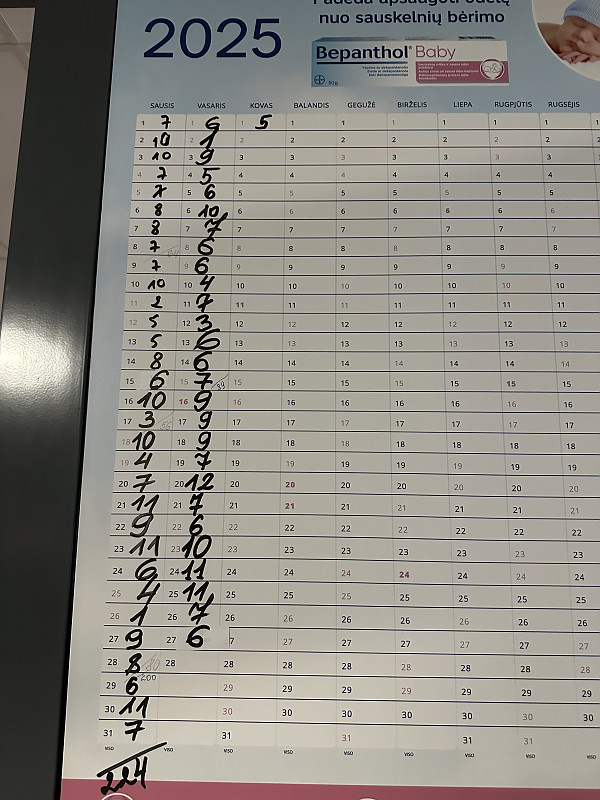 Padeda apsaugoti odelę
nuo sauskelnių bėrimo
2025
Bepanthol® Baby
SAUSIS VASARIS KOVAS BALANDIS GEGUŽĖ BIRŽELIS LIEPA RUGPJŪTIS RUGSĖJIS
1 7 1 6 1 5 1 1 1 1 1 1
2 10 2 1 2 2 2 2 2 2 2
3 10 3 9 3 3 3 3 3 3 3
4 7 4 5 4 4 4 4 4 4 4
5 7 5 6 5 5 5 5 5 5 5
6 8 6 10 6 6 6 6 6 6 6
7 8 7 7 7 7 7 7 7 7 7
8 7 8 6 8 8 8 8 8 8 8
9 7 9 6 9 9 9 9 9 9 9
10 10 10 4 10 10 10 10 10 10 10
11 2 11 7 11 11 11 11 11 11 11
12 5 12 3 12 12 12 12 12 12 12
13 5 13 6 13 13 13 13 13 13 13
14 8 14 6 14 14 14 14 14 14 14
15 6 15 7 15 15 15 15 15 15 15
16 10 16 9 16 16 16 16 16 16 16
17 3 17 9 17 17 17 17 17 17 17
18 10 18 9 18 18 18 18 18 18 18
19 4 19 7 19 19 19 19 19 19 19
20 7 20 12 20 20 20 20 20 20 20
21 11 21 7 21 21 21 21 21 21 21
22 9 22 6 22 22 22 22 22 22 22
23 11 23 10 23 23 23 23 23 23 23
24 6 24 11 24 24 24 24 24 24 24
25 4 25 11 25 25 25 25 25 25 25
26 1 26 7 26 26 26 26 26 26 26
27 9 27 6 7 27 27 27 27 27 27
28 8 28 28 28 28 28 28 28 28
29 6 200 29 29 29 29 29 29 29
30 11 30 30 30 30 30 30 30
31 7 31 31 31 31
VISO VISO VISO VISO VISO VISO VISO VISO
224